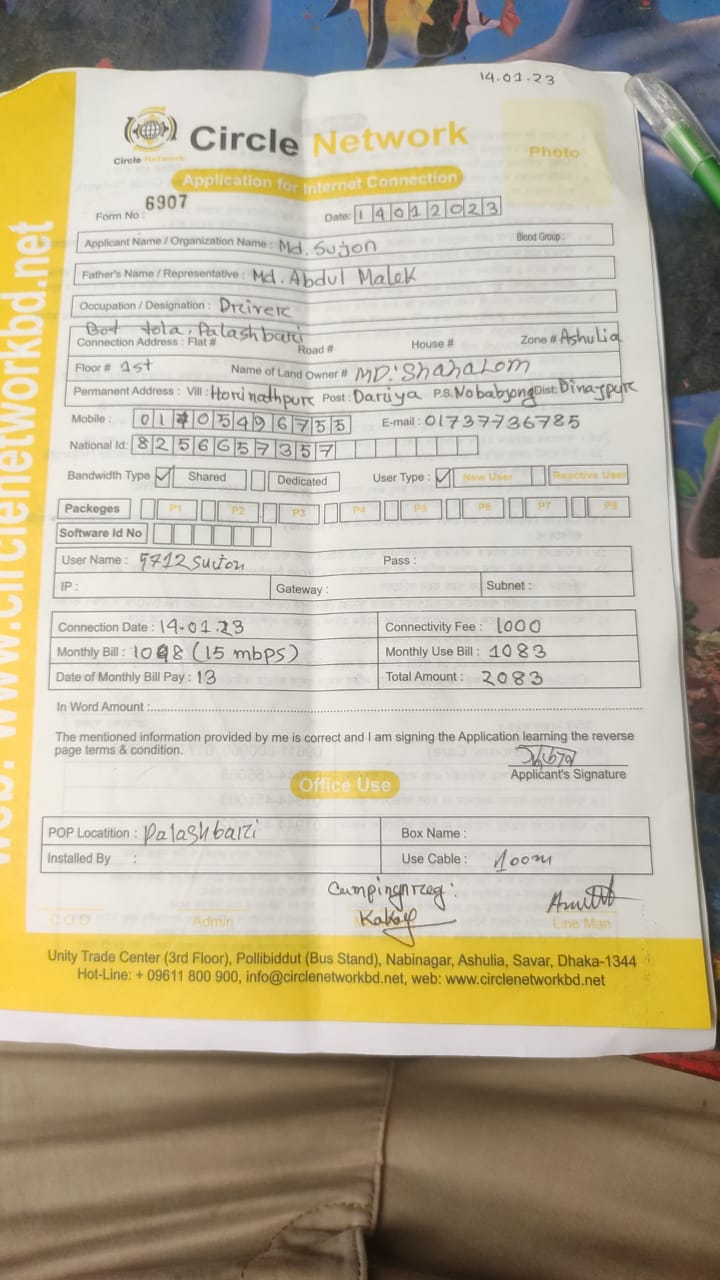 14.01.23
Circle Network
Circle Network
Photo
Application for Internet Connection
Form No : 6907
Date: 14012023
Applicant Name / Organization Name : Md. Sujon Blood Group :
Father's Name / Representative : Md. Abdul Malek
Occupation / Designation : Driver
Bot tola, Palashbari
Connection Address : Flat # Road # House # Zone # Ashulia
Floor # 1st Name of Land Owner # MD: Shahalom
Permanent Address : Vill : Horinathpur Post : Dariya P.S. Nobabgong Dist: Dinajpur
Mobile : E-mail : 01737736785
National Id: 8256657357
Bandwidth Type ✓ Shared Dedicated User Type : ✓ New User Reactive User
Packeges P1 P2 P3 P4 P5 P6 P7 P8
Software Id No
User Name : 5712 Sujon Pass :
IP : Gateway : Subnet :
Connection Date : 14.01.23 Connectivity Fee : 1000
Monthly Bill : (15 mbps) Monthly Use Bill : 1083
Date of Monthly Bill Pay : 13 Total Amount : 2083
In Word Amount :
The mentioned information provided by me is correct and I am signing the Application learning the reverse
page terms & condition.
Applicant's Signature
Office Use
POP Locatition : Palashbari Box Name :
Installed By : Use Cable : 100m
C.O.O Admin Line Man
Unity Trade Center (3rd Floor), Pollibiddut (Bus Stand), Nabinagar, Ashulia, Savar, Dhaka-1344
Hot-Line: + 09611 800 900, info@circlenetworkbd.net, web: www.circlenetworkbd.net
web: www.circlenetworkbd.net